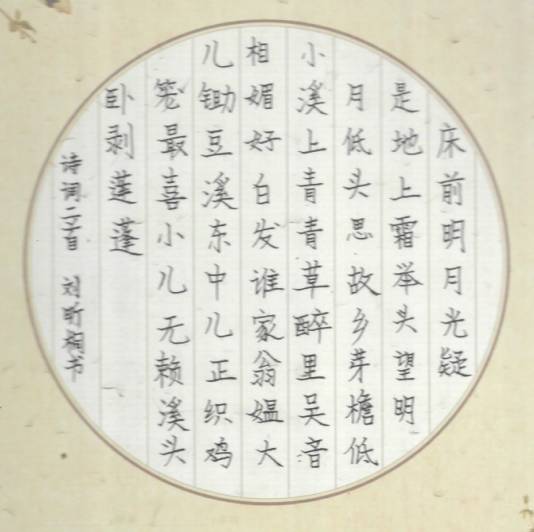 床前明月光疑
是地上霜举头望明
月低头思故乡芽檐低
小溪上青青草醉里吴音
相媚好白发谁家翁媪大
儿锄豆溪东中儿正织鸡
笼最喜小儿无赖溪头
卧剥莲蓬
诗词二首 刘昕桐书